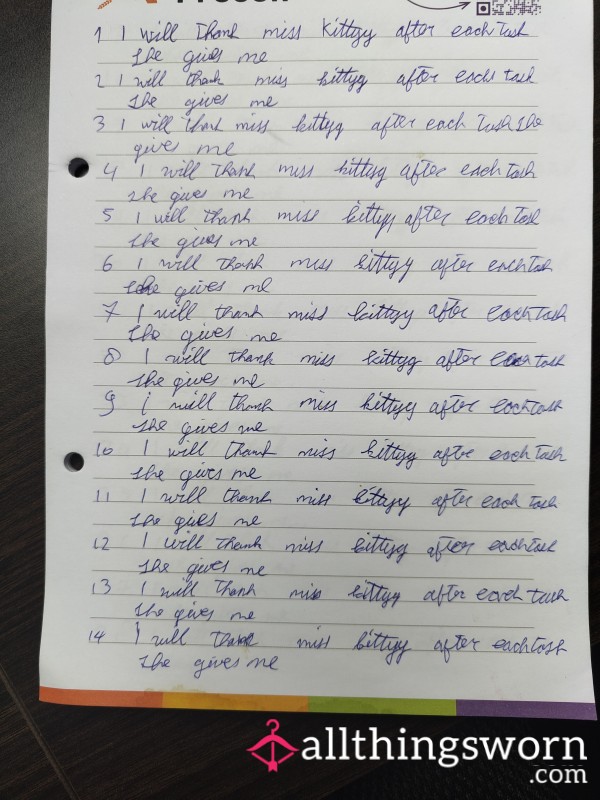 1 I will thank miss kittyy after each task
she gives me
2 I will thank miss kittyy after each task
she gives me
3 I will thank miss kittyy after each task she
gives me
4 I will thank miss kittyy after each task
she gives me
5 I will thank miss kittyy after each task
she gives me
6 I will thank miss kittyy after each task
she gives me
7 I will thank miss kittyy after each task
she gives me
8 I will thank miss kittyy after each task
she gives me
9 i will thank miss kittyy after each task
she gives me
10 I will thank miss kittyy after each task
she gives me
11 I will thank miss kittyy after each task
she gives me
12 I will thank miss kittyy after each task
she gives me
13 I will thank miss kittyy after each task
she gives me
14 I will thank miss kittyy after each task
she gives me
allthingsworn
.com